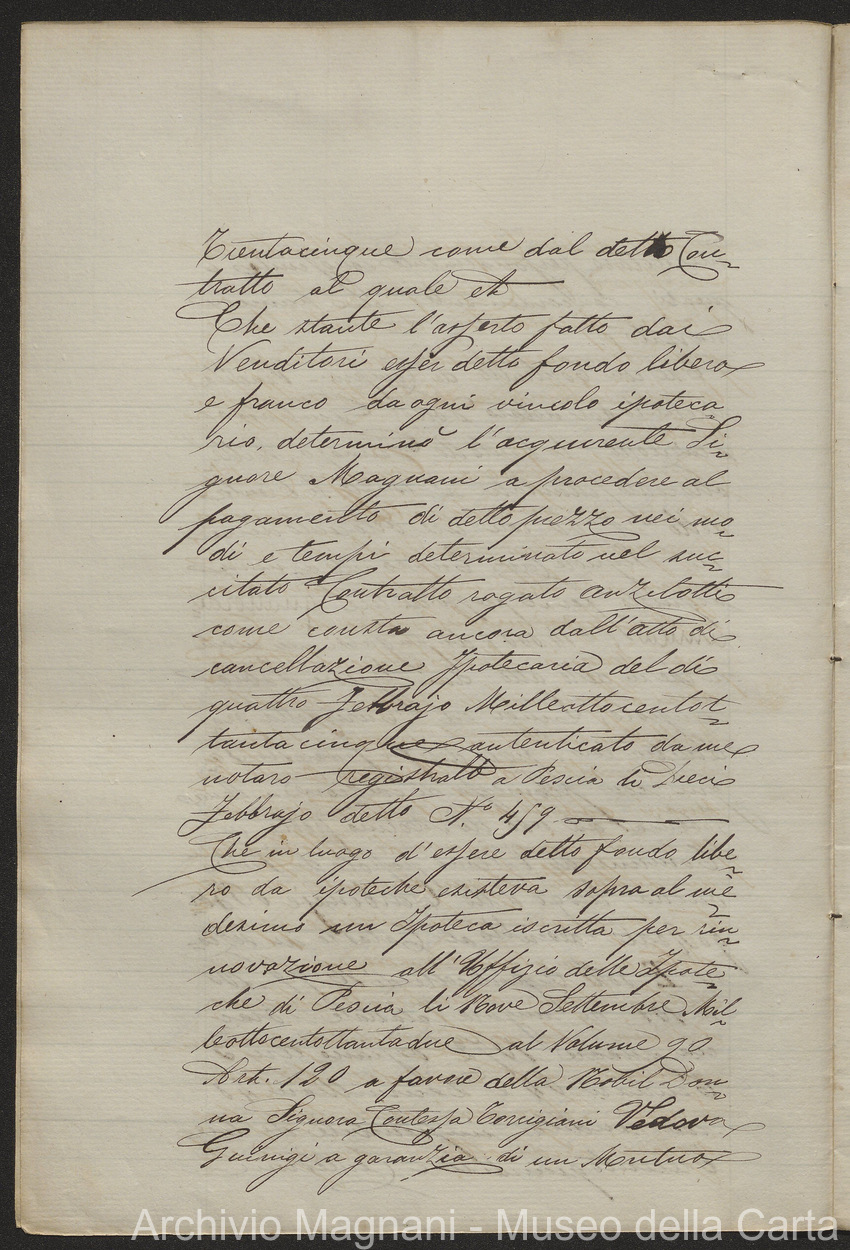 Trentacinque come dal detto Con-
tratto al quale et
Che stante l'asserto fatto dai
Venditori esser detto fondo libero
e franco da ogni vincolo ipoteca
rio, determinò l'acquirente Si-
gnore Magnani a procedere al
pagamento di detto prezzo nei mo-
di e tempi determinato nel suc-
citato Contratto rogato Anzilotti
come consta ancora dall'atto di
cancellazione Ipotecaria del dì
quattro Febbrajo Milleottocentot-
tantacinque autenticato da me
notaro registrato a Pescia li Dieci
Febbrajo detto N.º 459
Che in luogo d'essere detto fondo libe-
ro da ipoteche esisteva sopra al me-
desimo un Ipoteca iscritta per rin-
novazione all'Uffizio delle Ipote-
che di Pescia li Nove Settembre Mil-
leottocentottantadue al Volume 90
Art. 120 a favore della Nobil Don-
na Signora Contessa Torrigiani Vedova
Guinigi a garanzia di un Mutuo
Archivio Magnani - Museo della Carta